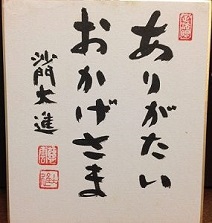 ありがたい
おかげさま
沙門大進